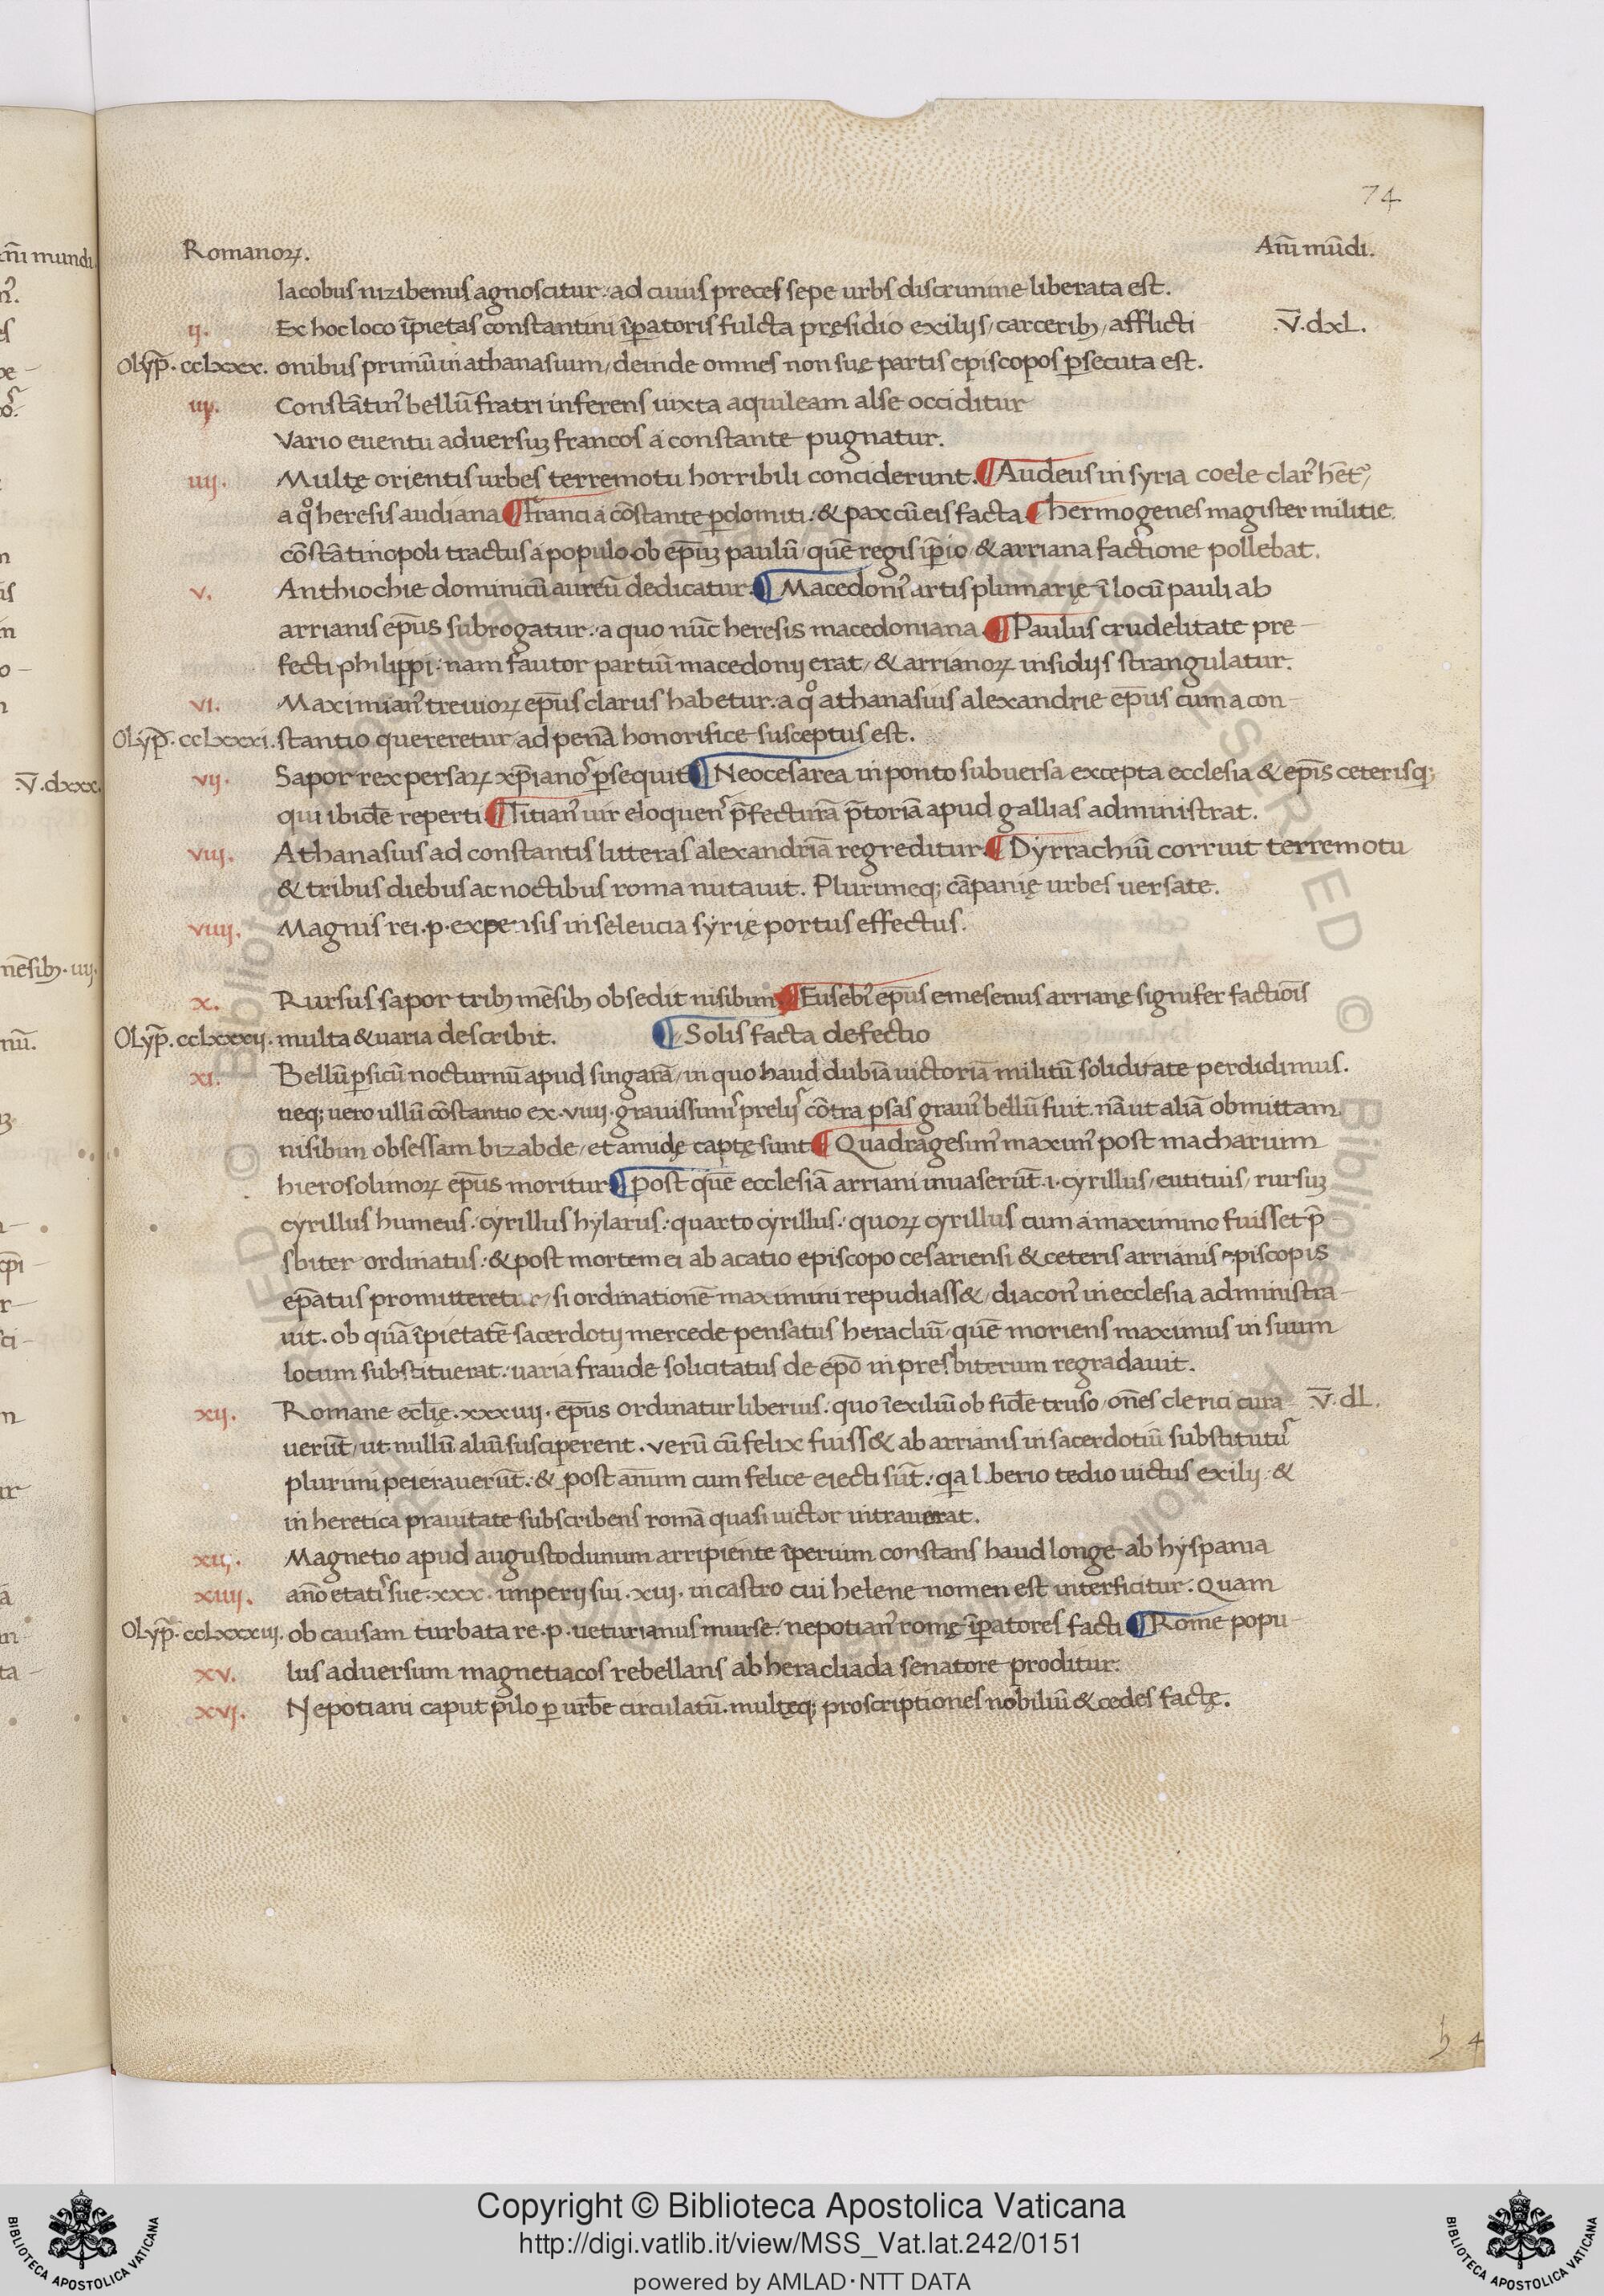 74
Romanoꝝ. An̄i mūdi.
Iacobus nizibenus agnoscitur: ad cuius preces sepe urbs discrimine liberata est.
ij. Ex hoc loco īpietas constantini īꝑatoris fulcta pręsidio exilijs/ carceribꝫ/ afflicti V̄.dxL.
Olyp̄. cclxxx. onibus primū in athanasium/ deinde omnes non suę partis episcopos ꝑsecuta est.
iij. Constātinꝰ bellū fratri inferens iuxta aquileam alse occiditur
Vario euentu aduersuꝫ francos a constante pugnatur.
iiij. Multę orientis urbes terremotu horribili conciderunt. ¶ Audeus in syria coele clarꝰ hētꝰ/
a qͦ heresis audiana ¶ Franci a cōstante ꝑdomiti: & pax cū eis facta. ¶ hermogenes magister militie.
cōstātinopoli tractus a populo ob ep̄uꝫ paulū/ quē regis iꝑio/ & arriana factione pollebat.
v. Anthiochie dominicū aureū dedicatur. ¶ Macedonꝰ artis plumarię ī locū pauli ab
arrianis ep̄us subrogatur: a quo nūc heresis macedoniana. ¶ Paulus crudelitate pre-
fecti philippi: nam fautor partiū macedonij erat/ & arrianoꝝ insidijs strangulatur.
vi. Maximianꝰ treuioꝝ ep̄us clarus habetur: a qͦ athanasius alexandrie ep̄us cum a con-
Olyp̄. cclxxxi. stantio quereretur ad penā honorifice susceptus est.
vij. Sapor rex persaꝝ xp̄ianos ꝑsequit ¶ Neocesarea in ponto subuersa excepta ecclesia & ep̄is ceterisqꝫ
qui ibidē reperti. ¶ Titianꝰ uir eloquens p̄fecturā p̄toriā apud gallias administrat.
viij. Athanasius ad constantis litteras alexandriā regreditur. ¶ Dyrrachiū corruit terremotu
& tribus diebus ac noctibus roma nutauit. Plurimeqꝫ cāpanię urbes uersate.
viiij. Magnis rei.p. expensis in seleucia syrię portus effectus.
x. Rursus sapor tribꝫ mēsibꝫ obsedit nisibim ¶ Eusebiꝰ ep̄us emesenus arrianę signifer factiōis
Olyp̄. cclxxxij. multa & uaria describit. ¶ Solis facta defectio
xi. Bellū ꝑsicū nocturnū apud singarā/ in quo haud dubiā uictoriā militū soliditate perdidimus.
neqꝫ uero ullū cōstantio ex .viiij. grauissimis prelijs cōtra ꝑsas grauiꝰ bellū fuit. nā ut aliā obmittam.
nisibim obsessam bizabde/ et amidę captę sunt ¶ Quadragesimꝰ maximꝰ post macharium
hierosolimoꝝ ep̄us moritur ¶ post quē ecclesiā arriani inuaserūt .i. cyrillus/ eutitius/ rursuꝫ
cyrillus humeus: cyrillus hylarus: quarto cyrillus: quoꝝ cyrillus cum a maximino fuisset p̄
sbiter ordinatus: & post mortem ei ab acatio episcopo cesariensi & ceteris arrianis episcopis
ep̄atus promitteretur/ si ordinationē maximini repudiass&/ diaconꝰ in ecclesia administra-
uit. ob quā īpietatē sacerdotij mercede pensatus heracliū/ quē moriens maximus in suum
locum substituerat: uaria fraude solicitatus de ep̄o in presbiterum regradauit.
xij. Romane eccl̄ię .xxxiiij. ep̄us ordinatur liberius: quo ī exiliū ob fidē truso/ on̄es clerici cura- V̄.dL.
uerūt/ ut nullū aliū susciperent. verū cū felix fuiss& ab arrianis in sacerdotiū substitutus
plurimi peierauerūt: & post an̄um cum felice eiecti sūt: qa liberio tedio uictus exilij & 
in heretica prauitate subscribens romā quasi uictor intrauerat.
xiij. Magnetio apud augustodunum arripiente īperium constans haud longe ab hyspania
xiiij. an̄o etatis sue .xxx. imperij sui .xiij. in castro cui helene nomen est interficitur. Quam
Olyp̄. cclxxxiij. ob causam turbata re.p. ueturianus murse: nepotianꝰ romę īꝑatores facti ¶ Rome popu-
xv. lus aduersum magnetiacos rebellans ab heracliada senatore proditur.
xvi. Nepotiani caput pilo ꝑ urbē circulatū. multęqꝫ proscriptiones nobiliū & cędes factę.
h 4
n̄i mundi
V̄.dxxx.
mēsibꝫ. iiij.
Copyright © Biblioteca Apostolica Vaticana
http://digi.vatlib.it/view/MSS_Vat.lat.242/0151
powered by AMLAD·NTT DATA
BIBLIOTECA APOSTOLICA VATICANA
BIBLIOTECA APOSTOLICA VATICANA